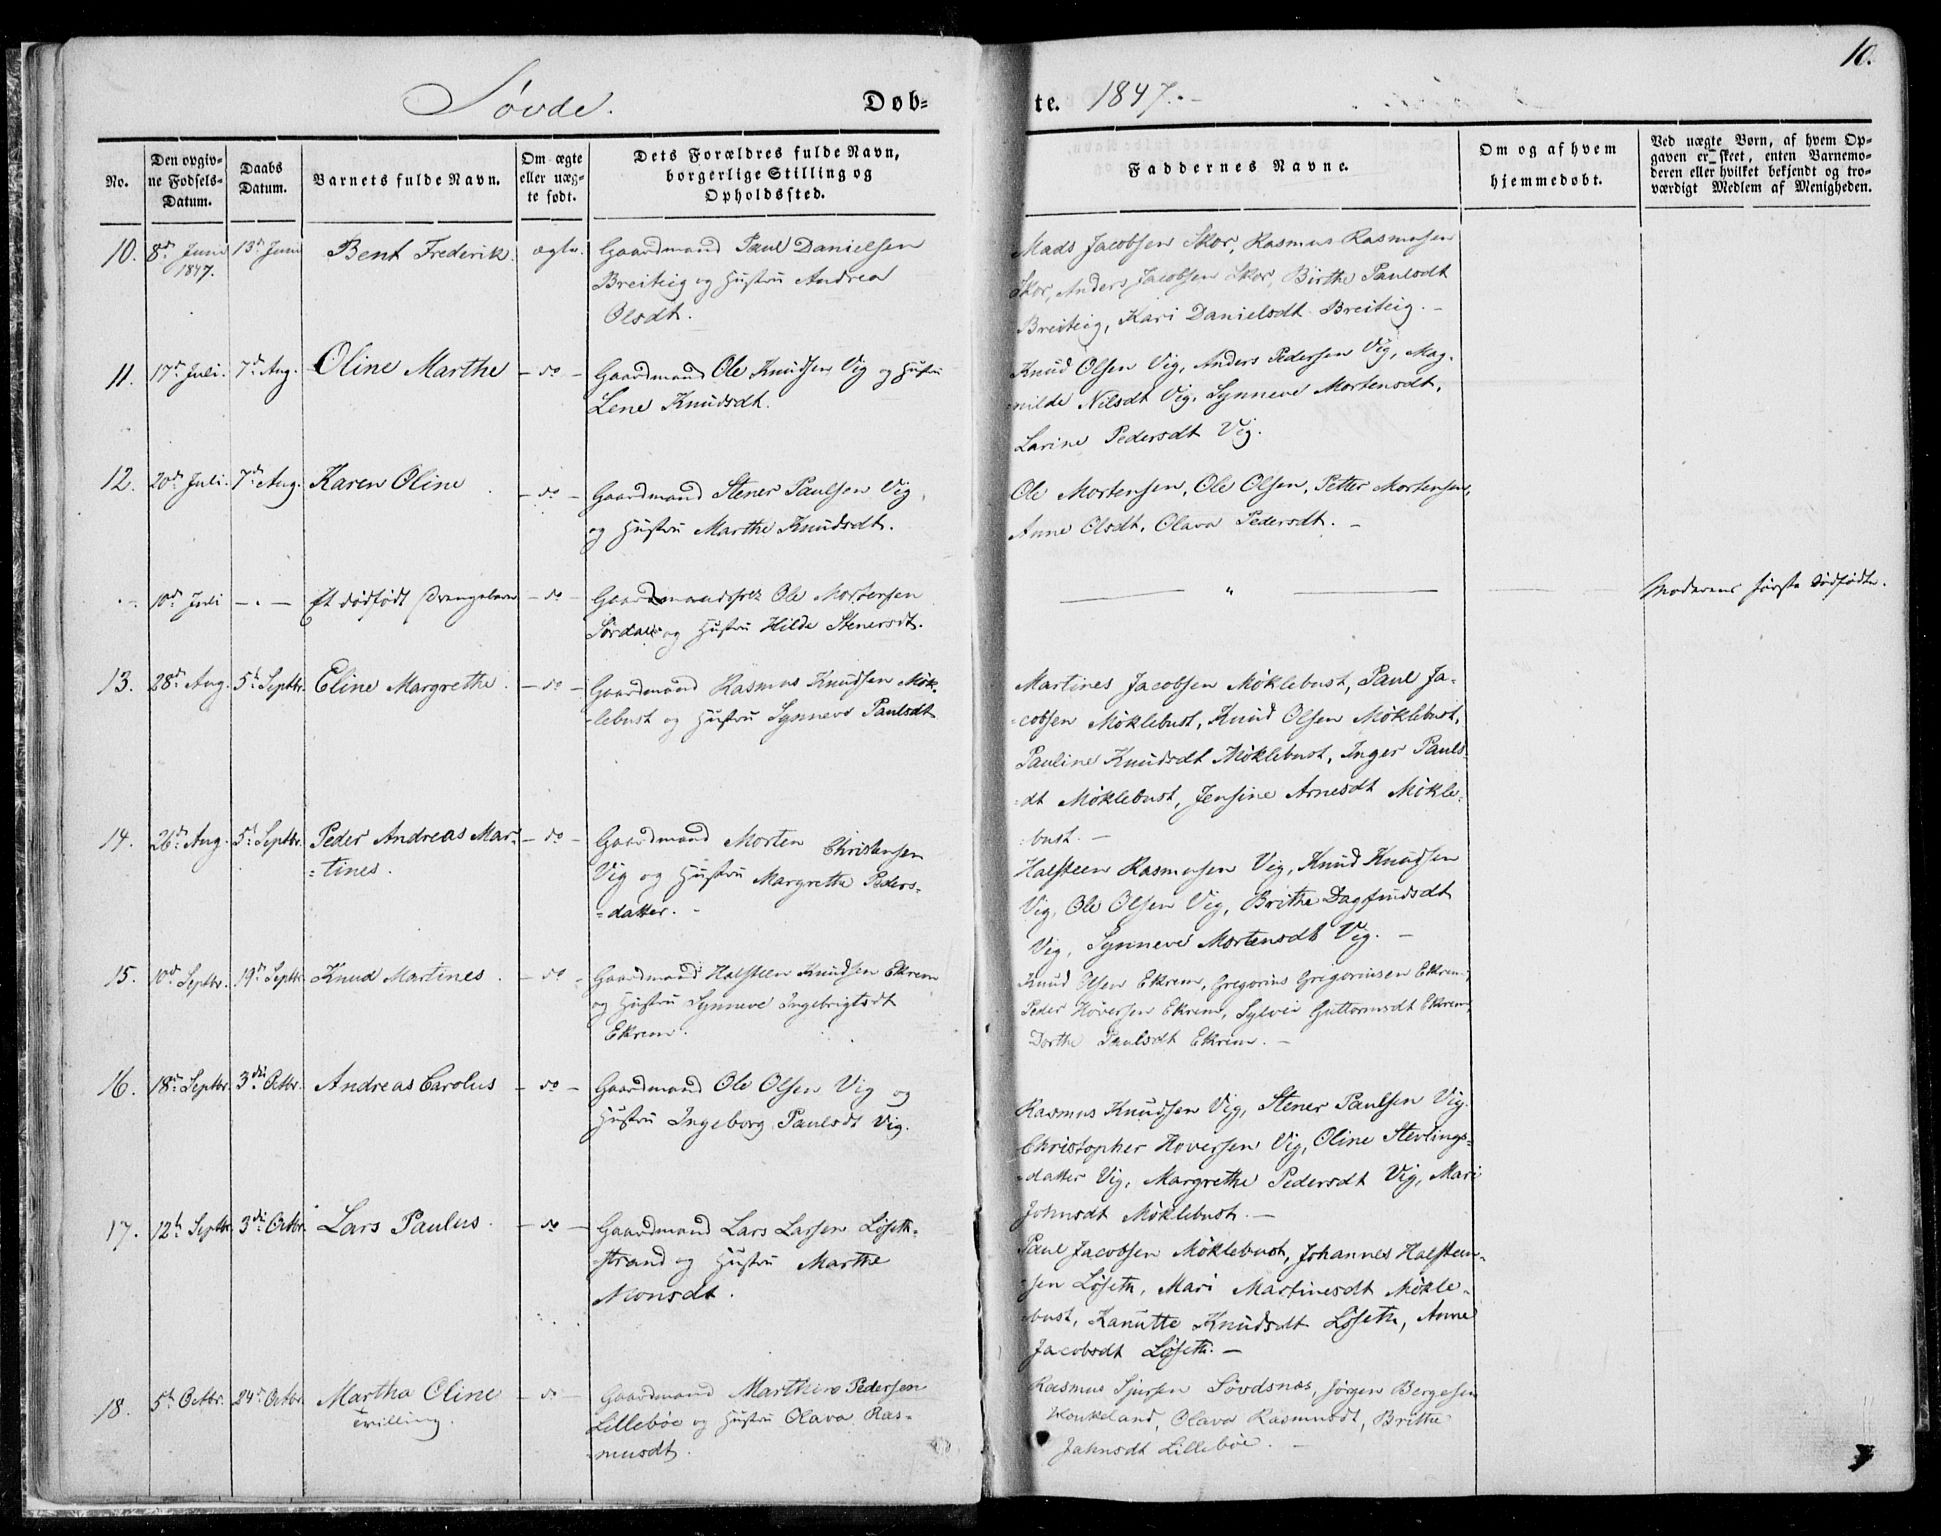 10.
Søvde. Døb-te. 1847.-
No.
Den opgiv-
ne Fødsels-
Datum.
Daabs
Datum.
Barnets fulde Navn.
Om ægte
eller uæg-
te født.
Dets Forældres fulde Navn,
borgerlige Stilling og
Opholdssted.
Faddernes Navne.
Om og af hvem
hjemmedøbt.
Ved uægte Børn, af hvem Op-
gaven er skeet, enten Barnemo-
deren eller hvilket bekjendt og tro-
værdigt Medlem af Menigheden.
10. 8de Juni 1847. 13de Juni Bent Frederik. ægte.
Gaardmand Paul Danielsen
Breiteig og Hustru Andrea
Olsdt.
Mads Jacobsen Skor, Rasmus Rasmusen
Skor, Anders Jacobsen Skor, Birthe Paulsdt
Breiteig, Kari Danielsdt Breiteig.-
11. 17de Juli. 7de Aug. Oline Marthe - do -
Gaardmand Ole Knudsen Vig og Hustru
Lene Knudsdt.
Knud Olsen Vig, Anders Pedersen Vig, Mag-
nilde Nilsdt Vig, Synneve Mortensdt,
Larine Pedersdt Vig.
12. 20de Juli. 7de Aug. Karen Oline - do -
Gaardmand Stener Paulsen Vig,
og Hustru Marthe Knudsdt.
Ole Mortensen, Ole Olsen, Petter Mortensen,
Anne Olsdt, Olava Pedersdt.-
10de Juli - . - Et dødfødt Drengebarn - do -
Ole Mortensen
Sørdal og Hustru Hilde Stenersdt.
"
Moderens første dødfødte.
13. 28de Aug. 5te Septbr. Eline Margrethe. - do -
Gaardmand Rasmus Knudsen Møk-
lebust og Hustru Synneve Paulsdt
Martines Jacobsen Møklebust, Paul Ja-
cobsen Møklebust, Knud Olsen Møklebust,
Pauline Knudsdt Møklebust, Inger Pauls-
dt Møklebust, Jensine Arnesdt Møkle-
bust.-
14. 26de Aug. 5te Septbr. Peder Andreas Mar-
tines. - do -
Gaardmand Morten Christensen
Vig og Hustru Margrethe Peders-
datter.-
Halsteen Rasmusen Vig, Knud Knudsen
Vig, Ole Olsen Vig, Brithe Dagfindsdt
Vig, Synneve Mortensdt Vig.-
15. 10de Septbr. 19de Septbr. Knud Martines. - do -
Gaardmand Halsteen Knudsen Ekrem
og Hustru Synneve Ingebrigtsdt
Ekrem.
Knud Olsen Ekrem, Gregorius Gregoriusen Ekrem,
Peder Hoversen Ekrem, Sylvei Guttormsdt Ekrem,
Dorthe Paulsdt Ekrem.-
16. 18de Septbr. 3die Octbr. Andreas Carolus - do -
Gaardmand Ole Olsen Vig og
Hustru Ingeborg Paulsdt Vig.
Rasmus Knudsen Vig, Stener Paulsen Vig.
Christopher Hoversen Vig, Oline Stevlings-
datter Vig, Margrethe Pedersdt Vig, Mari
Johnsdt Møklebust.-
17. 12te Septbr. 3die Octbr. Lars Paulus. - do -
Gaardmand Lars Larsen Løseth-
strand og Hustru Marthe
Monsdt.
Paul Jacobsen Møklebust, Johannes Halsteen-
sen Løseth, Mari Martinesdt Møkle-
bust, Kanutte Knudsdt Løseth, Anne
Jacobsdt Løseth.-
18. 5te Octbr. 24de Octbr. Martha Oline
Tvilling. - do -
Gaardmand Marthin Pedersen
Lillebøe og Hustru Olava Ras-
musdt.
Rasmus Sjursen Søvdsnæs, Jørgen Bergesen
Houkeland, Olava Rasmusdt, Brithe
Jahnsdt Lillebøe.-